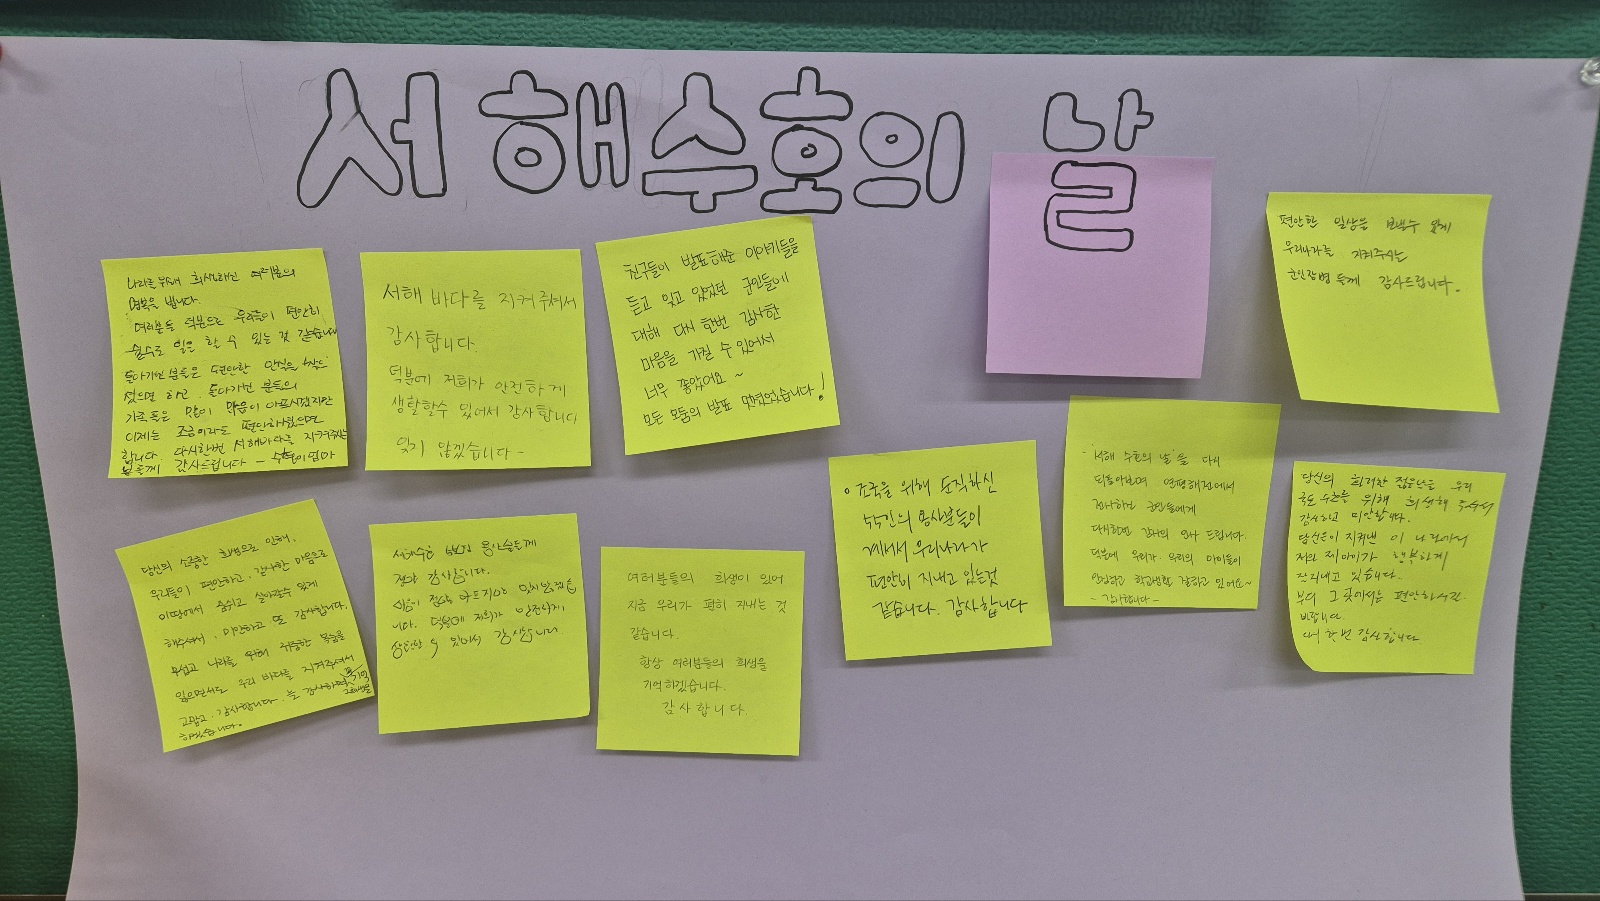 서해수호의 날
나라를 위해 희생하신 여러분의
명복을 빕니다.
여러분들 덕분으로 우리들이 편안히
일을 할 수 있는 것 같습니다
돌아가신 분들은 편안한 안식을
셨으면 하고, 돌아가신 분들의
가족들은 많이 마음이 아프시겠지만
이제는 조금이라도 편안하셨으면
합니다. 다시한번 서해바다를 지켜주신
분들께 감사드립니다 -
서해 바다를 지켜 주셔서
감사합니다.
덕분에 저희가 안전하게
생활할수 있어서 감사합니다
잊지 않겠습니다 -
친구들이 발표해준 이야기들을
듣고 잊고 있었던 군인들에
대해 다시 한번 감사한
마음을 가질 수 있어서
너무 좋았어요 ~
모든 모둠의 발표 멋졌었습니다!
편안한 일상을 보낼수 있게
우리나라를 지켜주시는
군인장병 들께 감사드립니다.
당신의 소중한 희생으로 인해,
우리들이 편안하고, 감사한 마음으로
이땅에서 숨쉬고 살아갈수 있게
해주셔서, 미안하고 또 감사합니다.
무섭고 나라를 위해 귀중한 목숨을
잃으면서도 우리 바다를 지켜주셔서
고맙고, 감사합니다. 늘 감사하며 기억
하겠습니다.
서해수호 용사들께
정말 감사합니다.
마음이 정말 아프지만 잊지않겠습
니다. 덕분에 저희가 안전하게
생활할 수 있어서 감사합니다.
여러분들의 희생이 있어
지금 우리가 편히 지내는 것
같습니다.
항상 여러분들의 희생을
기억하겠습니다.
감사합니다.
조국을 위해 순직하신
군인의 용사분들이
계셔서 우리나라가
편안히 지내고 있는것
같습니다. 감사합니다
'서해 수호의 날'을 다시
되돌아보며 연평해전에서
전사하신 군인들에게
감사의 인사 드립니다.
덕분에 우리가, 우리의 아이들이
안심하고 학교생활 잘하고 있어요~
- 감사합니다 -
당신의 희려한 젊은날을 우리
국토 수호를 위해 희생해 주셔서
감사하고 미안합니다.
당신들이 지켜낸 이 나라에서
저와 제 아이가 행복하게
잘지내고 있습니다.
부디 그 곳에서는 편안하시길
바랍니다.
다시 한번 감사합니다